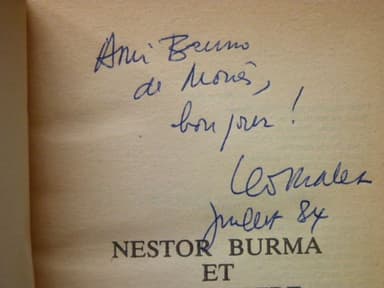 Ami Bruno
de Monès,
bonjour !
Léo Malet
Juillet 84
NESTOR BURMA
ET